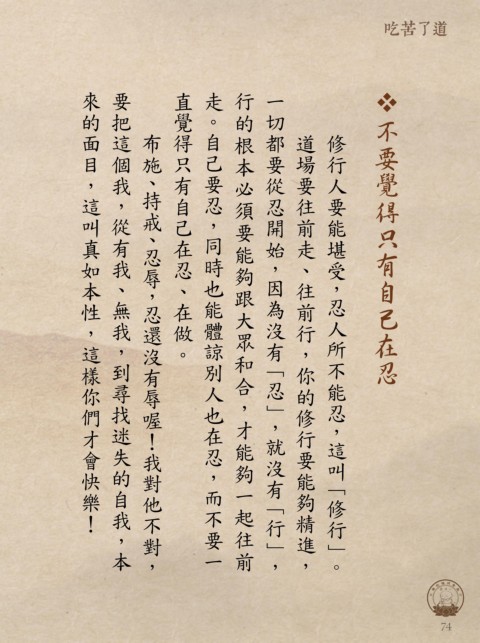 吃苦了道
❖不要覺得只有自己在忍
修行人要能堪受，忍人所不能忍，這叫「修行」。
道場要往前走、往前行，你的修行要能夠精進，
一切都要從忍開始，因為沒有「忍」，就沒有「行」，
行的根本必須要能夠跟大眾和合，才能夠一起往前
走。自己要忍，同時也能體諒別人也在忍，而不要一
直覺得只有自己在忍、在做。
布施、持戒、忍辱，忍還沒有辱喔！我對他不對，
要把這個我，從有我、無我，到尋找迷失的自我，本
來的面目，這叫真如本性，這樣你們才會快樂！
74